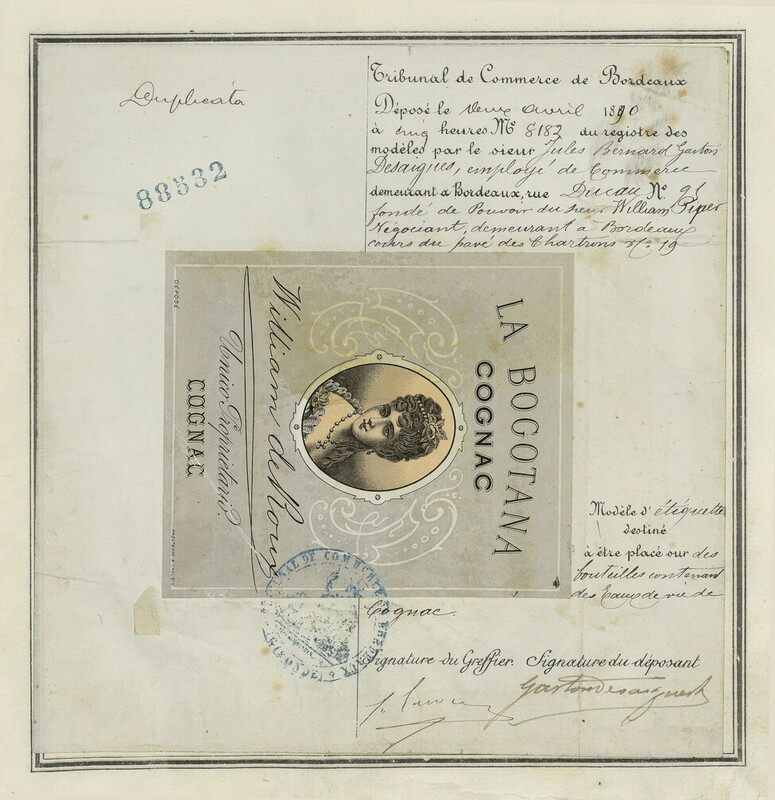 Duplicata
88532
Tribunal de Commerce de Bordeaux
Déposé le deux avril 1890
à cinq heures No 8182 du registre des
modèles par le sieur Jules Bernard Gaston
Desaigues, employé de Commerce
demeurant à Bordeaux, rue Ducau No. 95
fondé de Pouvoir du sieur William Piper
Négociant, demeurant à Bordeaux
cours du pavé des Chartrons No. 19
LA BOGOTANA
COGNAC
William de Roug
Unico Proprietario
COGNAC
DÉPOSÉ
Modèle d'étiquette
destiné
à être placé sur des
bouteilles contenant
des Eaux de vie de
Cognac.
TRIBUNAL DE COMMERCE BORDEAUX
Signature du Greffier. Signature du déposant